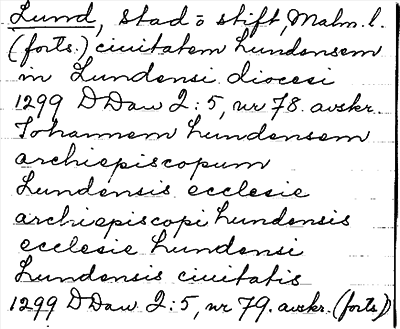 Lund, stad o stift, Malm. l.
(forts.) ciuitatem lundensem
in Lundensi diocesi
1299 DDan 2:5, nr 78. avskr.
Johannem lundensem
archiepiscopum
Lundensis ecclesie
archiepiscopi lundensis
ecclesie lundensi
Lundensis ciuitatis
1299 DDan 2:5, nr 79. avskr. (forts)